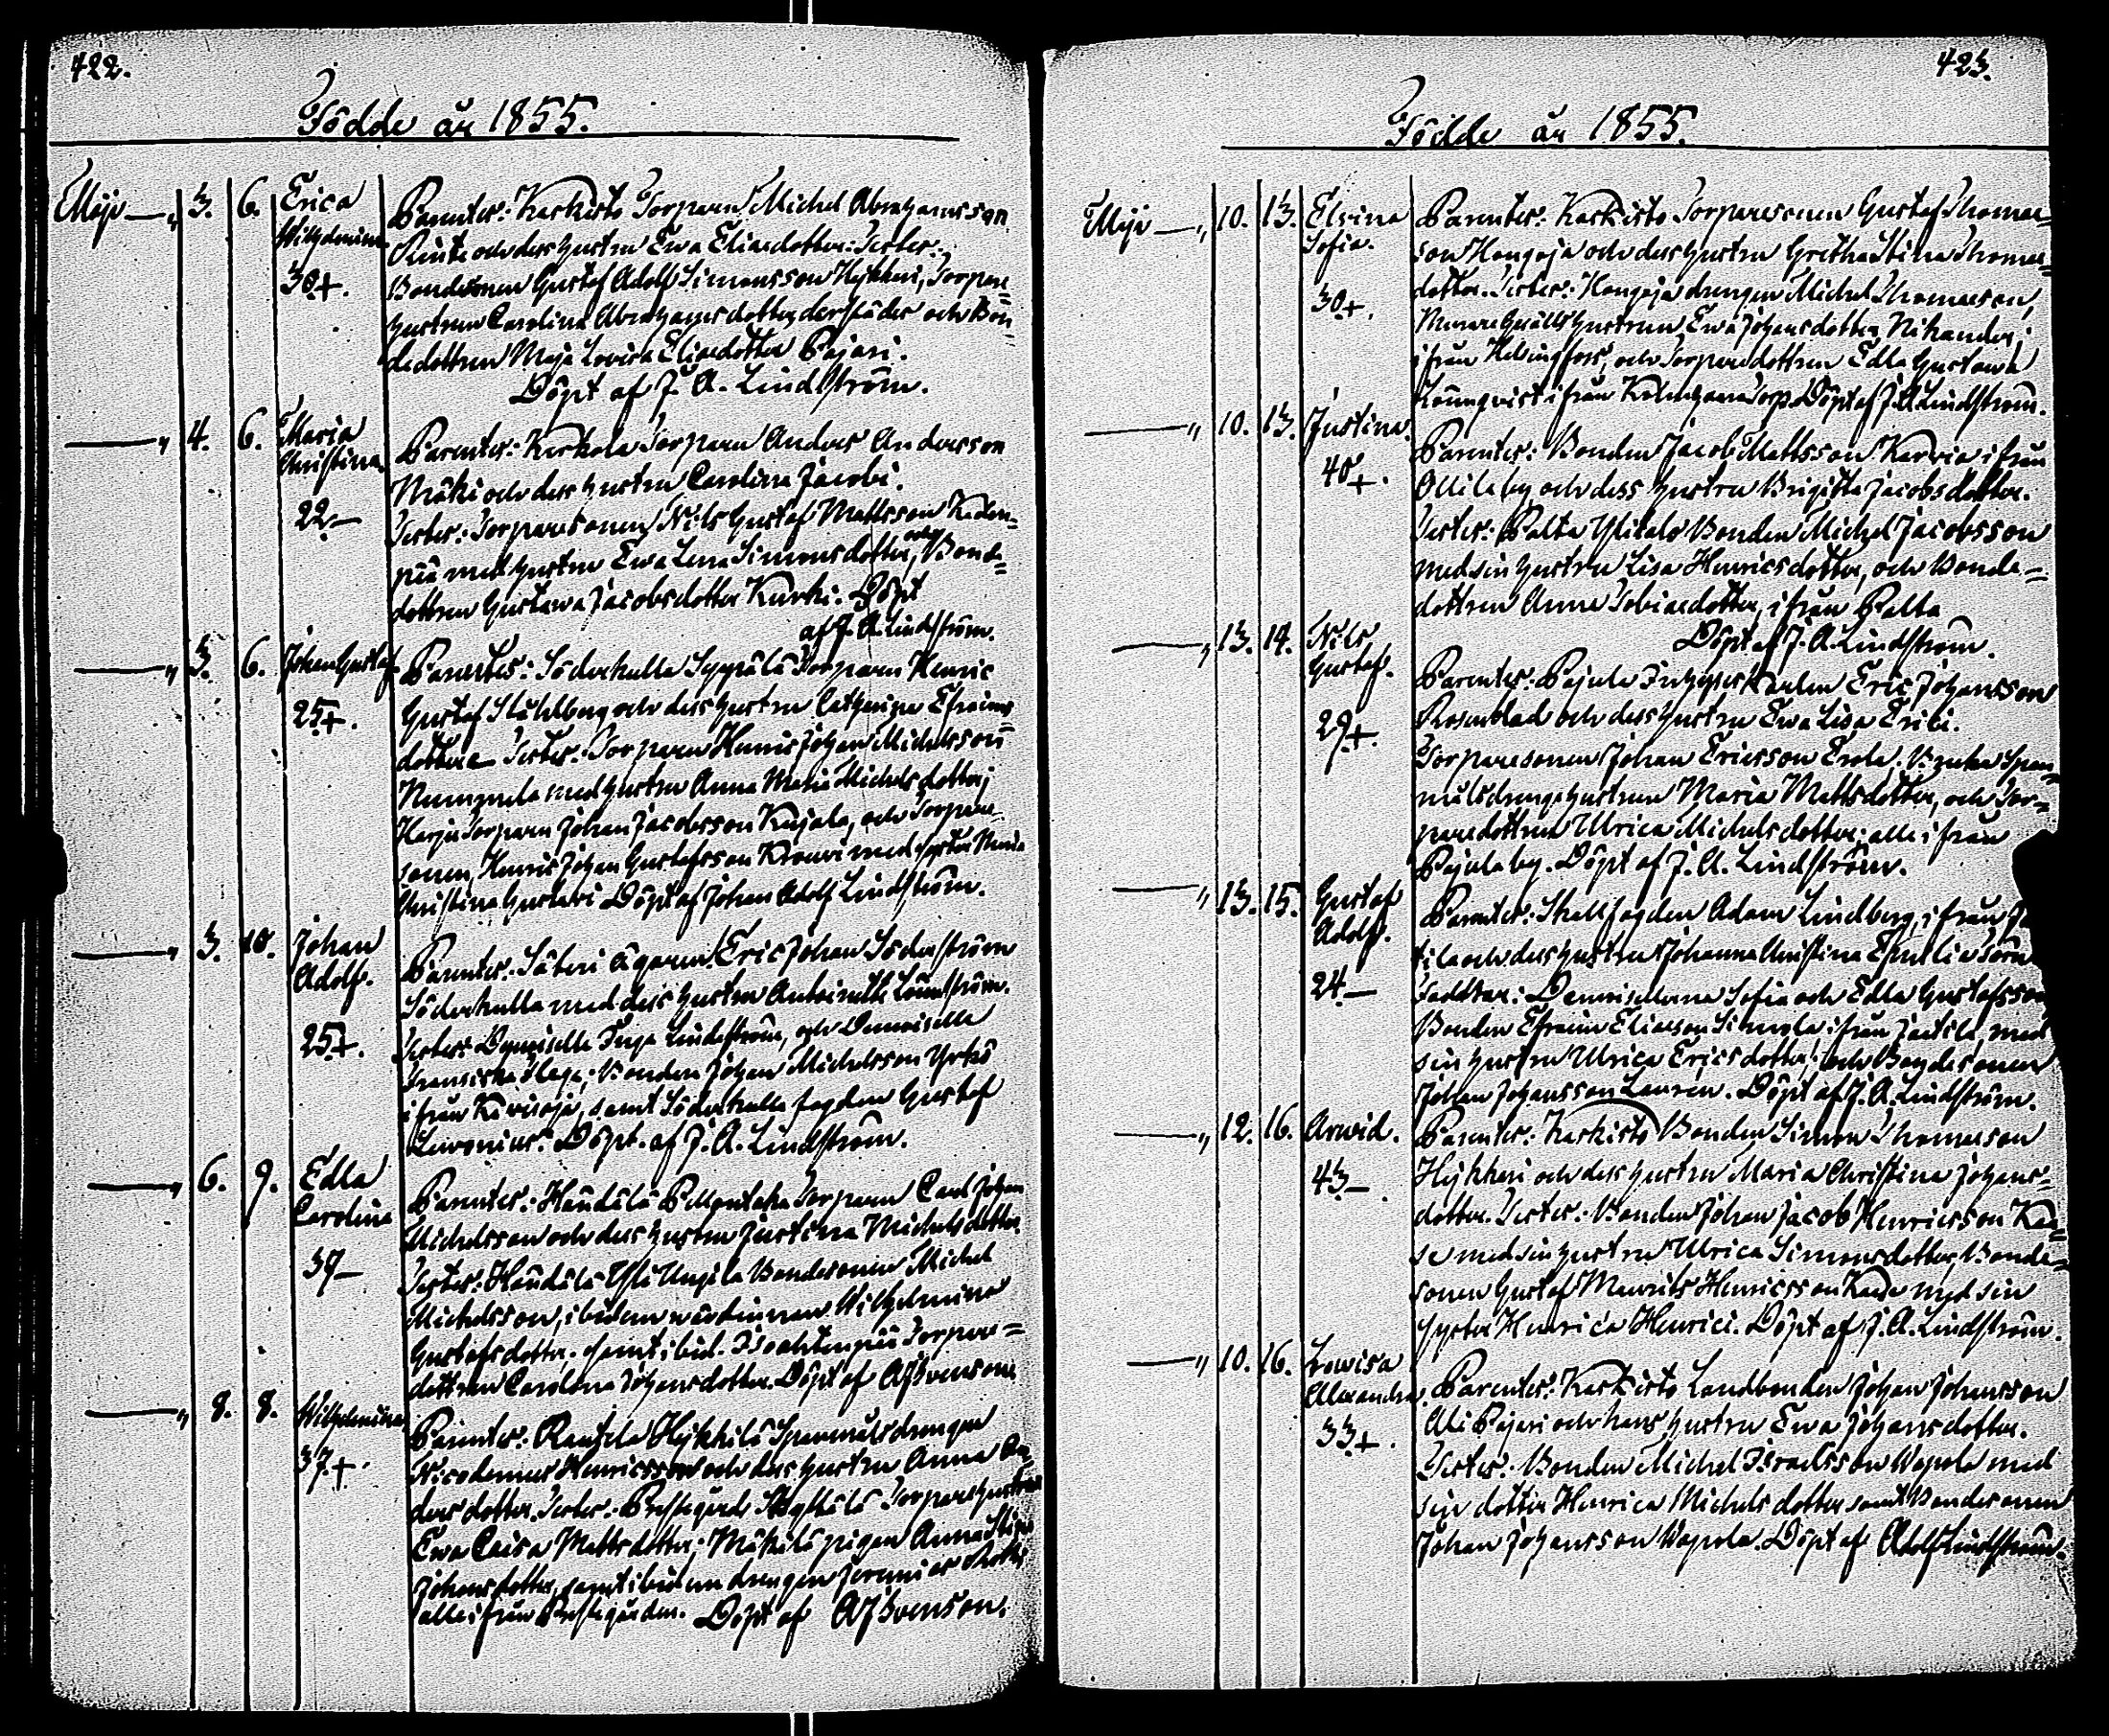 422.
Födde år 1855.
Maji — „ 3. 6. Erica Wilhelmina 30+.
Parenter: Karkisto Torparen Michel Abrahamsson
Rinta och dess hustru Ewa Eliaedotter: Testes:
Bondesonen Gustaf Adolf Simonsson Hykkeri, Torpare=
hustrun Carolina Abrahamsdotter derstädes och Bon=
dedottren Maja Lovisa Eliaedotter Pajari.
Döpt af J. A. Lindström.
— „ 4. 6. Maria Christina. 22—
Parenter: Kerkola Torparen Anders Andersson
Mäki och dess hustru Carolina Jacobi.
Testes: Torparesonen Nils Gustaf Mattsson Keden=
pää med hustru Ewa Lena Simonsdotter, och Bonde=
dottren Gustawa Jacobsdotter Kurki. Döpt
af J. A. Lindström.
— „ 3. 6. Johan Gustaf 25+.
Parentes: Söderkulla Seppälä Torparen Henric
Gustaf Ståhlberg och dess hustru Catharina Efraims
dotter Testes: Torparen Henric Johan Michelsson
Nummela med hustru Anna Maria Michelsdotter;
Harju Torparen Johan Jacobsson Kujala, och Torpare=
sonen, Henric Johan Gustafsson med syster Maria
Christina Gustavi Döpt af Johan Adolf Lindström.
— „ 3. 10. Johan Adolf. 25+.
Parenter: Säteri ägaren Eric Johan Söderström
Söderkulla med dess hustru Antoinette Lönnström.
Testes: Demoiselle Lindström, och Demoiselle
Fransiska; Bonden Johan Michelsson Yrkö
ifrån Kovisoja, samt Söderkulla fogden Gustaf
Levonius. Döpt. af J. A. Lindström.
— „ 6. 9. Edla Carolina 39—
Parenter: Torparen Carl Johan
Michelsson och dess hustru Justina Michelsdotter.
Testes: Bondesonen Michel
Michelsson, ibidem wärdinnan Wilhelmina
Gustafsdotter, samt ibid. Torpare=
dottren Carolina Johansdotter. Döpt af AJSvenson.
— „ 8. 8. Wilhelmina 37+.
Parenter: Rantela Hykkilä Spanmålsdrengen
Nicodemus Henricsson och dess hustru Anna An=
dersdotter. Testes: Prestegårds Torparehustrun
Ewa Caisa Mattsdotter; Mäkilä pigan Anna Stina
Johansdotter, samt ibidem drengen Jeremias
alle ifrån Prestegården. Döpt af AJSvenson.
423.
Födde år 1855.
Maji — „ 10. 13. Elvina Sofia. 30+.
Parenter: Karkisto Torparesonen Gustaf Thomas=
son Hongoja och dess hustru Gretha Stina Thomae=
dotter. Testes: Hongoja drengen Michel Thomasson,
Murare Gesälls hustrun Ewa Johansdotter Nikander;
ifrån Helsingfors, och Torparedottren Edla Gustawa
Lönnqvist ifrån Torp. Döpt af J. A. Lindström.
— „ 10. 13. Justina. 40+.
Parenter: Bonden Jacob Mattsson Karvia ifrån
Ollila by och dess hustru Brigitta Jacobsdotter.
Testes: Palta Ylitalo Bonden Michel Jacobsson
med sin hustru Lisa Henricsdotter, och Bonde=
dottren Anna Tobiaedotter, ifrån Palta
Döpt af J. A. Lindström.
— „ 13. 14. Nils Gustaf. 29+.
Parenter: Pajula Inhyseskarlen Eric Johansson
Rosenblad och dess hustru Ewa Lisa Erici.
Torparesonen Johan Ericsson Erola. Span=
målsdrengehustrun Maria Mattsdotter, och Tor=
paredottren Ulrica Michelsdotter; alle ifrån
Pajula by. Döpt af J. A. Lindström.
— „ 13. 15. Gustaf Adolf. 24—
Parenter: Skallfogden Adam Lindberg, ifrån
och dess hustru Johanna Christina
Faddrar: Demoisellerna Sofia och Edla Gustafsson
Bonden Efraim Eliaeson Simola ifrån Jautila, med
sin hustru Ulrica Ericsdotter, och Bondesonen
Johan Johansson Lauren. Döpt af J. A. Lindström.
— „ 12. 16. Arwid. 43—
Parenter: Karkisto Bonden Simon Thomasson
Hykkeri och dess hustru Maria Christina Johans=
dotter. Testes: Bonden Johan Jacob Henricsson Kaa=
se med sin hustru Ulrica Simonsdotter, Bonde=
sonen Gustaf Maurits Henricsson Kaase med sin
syster Henrica Henrici. Döpt af J. A. Lindström.
— „ 10. 16. Lowisa Alexandra. 33+.
Parenter: Karkisto Landbonden Johan Johansson
Ali Pajari och hans hustru Ewa Johansdotter.
Testes: Bonden Michel Israelsson Wapola med
sin dotter Henrica Michelsdotter samt Bondesonen
Johan Johansson Wapola. Döpt af Adolf Lindström.